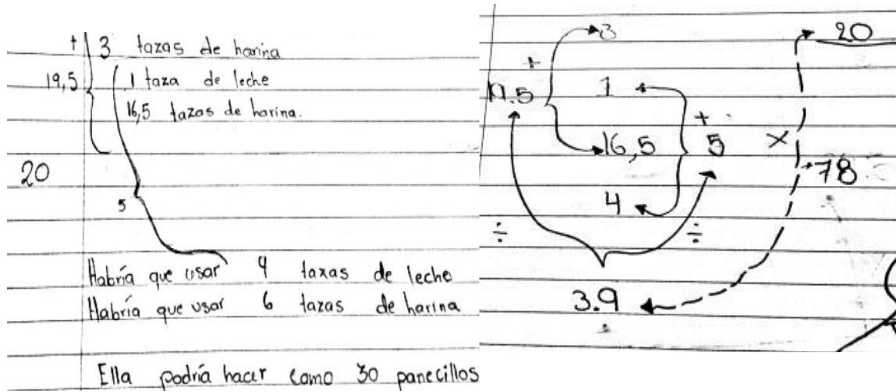 + 3 tazas de harina
19,5 1 taza de leche
16,5 tazas de harina.
20
5
Habría que usar 4 taxas de leche
Habría que usar 6 tazas de harina
Ella podría hacer como 30 panecillos
3 20
+
19.5 1
+
16,5 5 x
78
4
÷ ÷
3.9